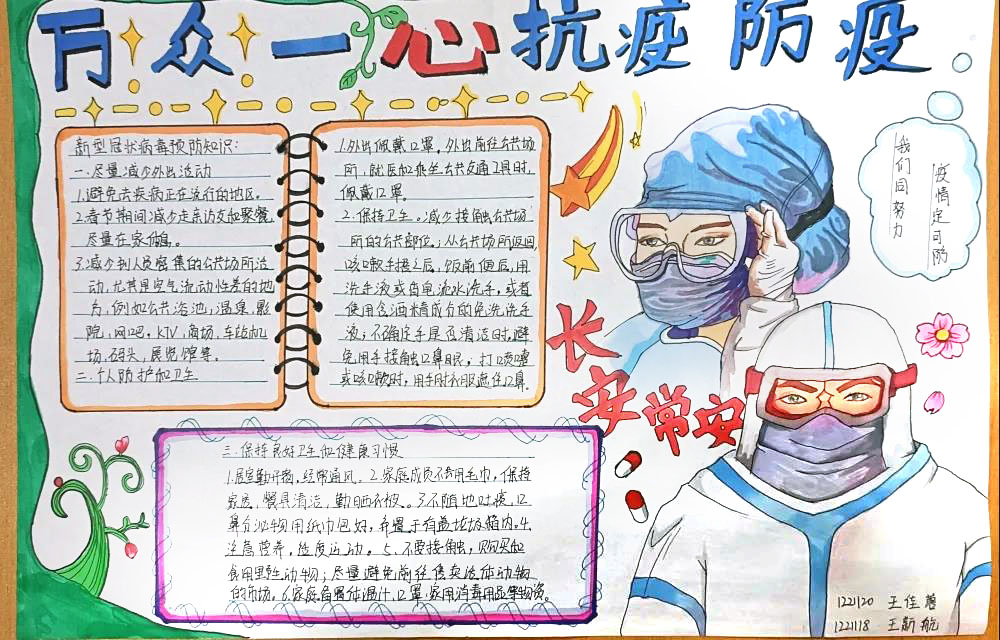 万众一心抗疫防疫
新型冠状病毒预防知识：
一.尽量减少外出活动
1.避免去疾病正在流行的地区。
2.春节期间减少走亲访友和聚餐,
尽量在家休息。
3.减少到人员密集的公共场所活
动,尤其是空气流动性差的地
方,例如公共浴池,温泉,影
院,网吧,KTV,商场,车站,机
场,码头,展览馆等。
二.个人防护和卫生
1.外出佩戴口罩。外出前往公共场
所,就医和乘坐公共交通工具时,
佩戴口罩。
2.保持手卫生。减少接触公共场
所的公共部位；从公共场所返回,
咳嗽手捂之后,饭前便后,用
洗手液或香皂流水洗手,或者
使用含酒精成分的免洗洗手
液；不确定手是否清洁时,避
免用手接触口鼻眼,打喷嚏
或咳嗽时,用手肘衣服遮住口鼻.
我们同努力
疫情定可防
长安常安
三.保持良好卫生和健康习惯
1.居室勤开窗,经常通风。2.家庭成员不共用毛巾,保持
家居,餐具清洁,勤晒衣被。3.不随地吐痰,口
鼻分泌物用纸巾包好,弃置于有盖垃圾箱内.4.
注意营养,适度运动。5.不要接触,购买和
食用野生动物；尽量避免前往售卖活体动物
的市场。6.家庭备置体温计,口罩,家用消毒用品等物资。
1221120 王佳
1221118 王新航